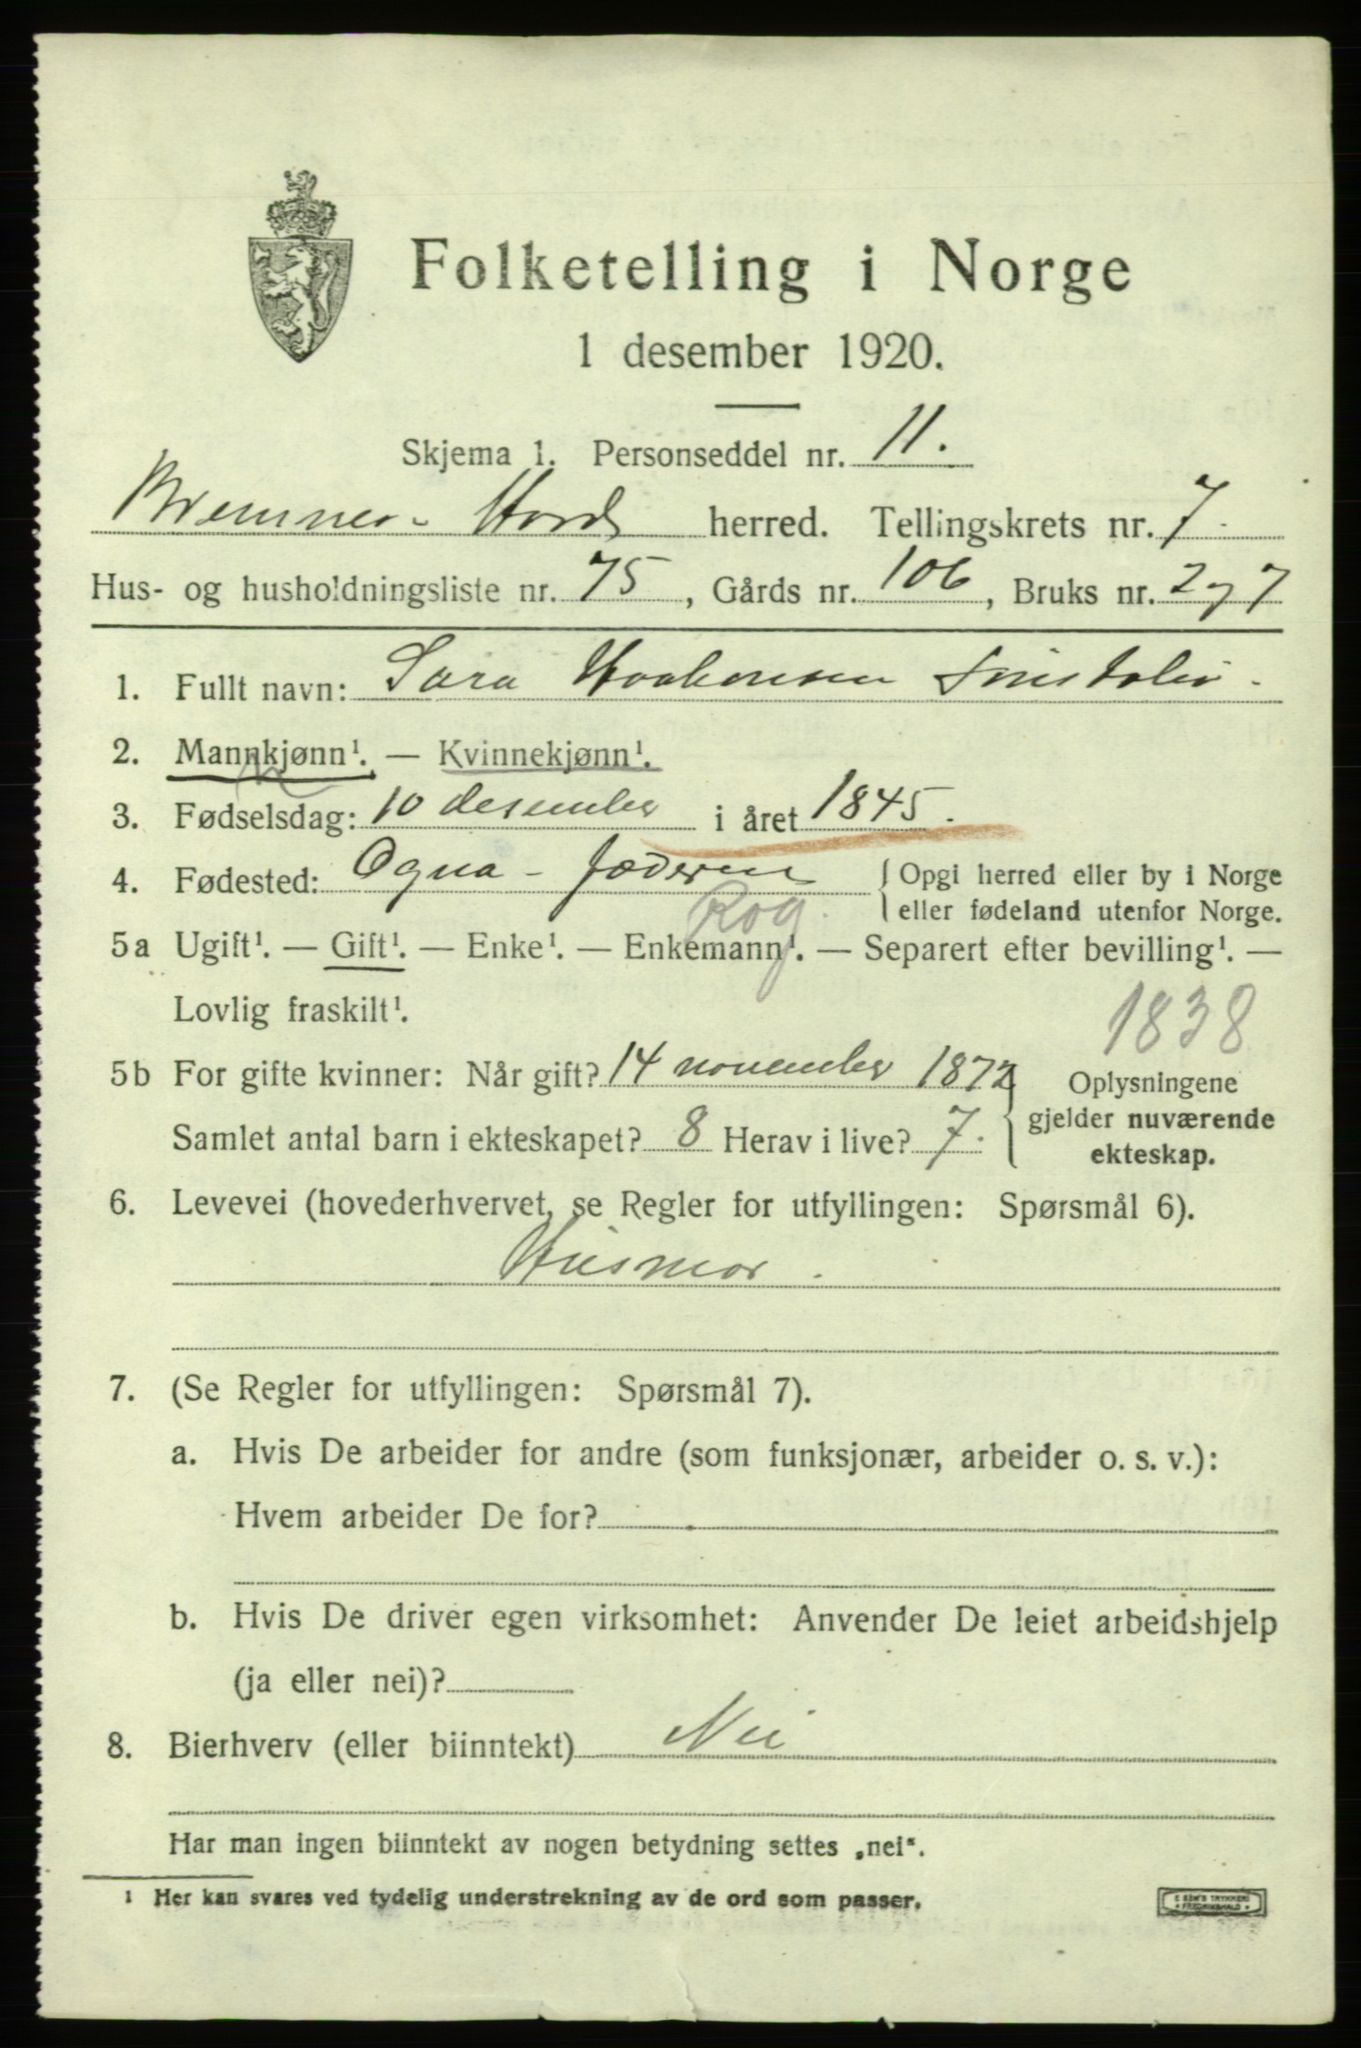 Folketelling i Norge
1 desember 1920.
Skjema 1. Personseddel nr. 11.
Bremnes - Hord herred. Tellingskrets nr. 7.
Hus- og husholdningsliste nr. 75, Gårds nr. 106, Bruks nr. 2 og 7
1. Fullt navn: Sara Haakonsen
2. Mannkjønn¹. — Kvinnekjønn¹.
3. Fødselsdag: 10 desember i året 1845.
4. Fødested: Ogna - Jæderen { Opgi herred eller by i Norge
eller fødeland utenfor Norge.
Rog.
5a Ugift¹. — Gift¹. — Enke¹. — Enkemann¹. — Separert efter bevilling¹. —
Lovlig fraskilt¹.
1838
5b For gifte kvinner: Når gift? 14 november 1872 { Oplysningene
gjelder nuværende
Samlet antal barn i ekteskapet? 8 Herav i live? 7.
ekteskap.
6. Levevei (hovederhvervet, se Regler for utfyllingen: Spørsmål 6).
Husmor.
7. (Se Regler for utfyllingen: Spørsmål 7).
a. Hvis De arbeider for andre (som funksjonær, arbeider o. s. v.):
Hvem arbeider De for?
b. Hvis De driver egen virksomhet: Anvender De leiet arbeidshjelp
(ja eller nei)?
8. Bierhverv (eller biinntekt) Nei
Har man ingen biinntekt av nogen betydning settes „nei“.
1 Her kan svares ved tydelig understrekning av de ord som passer.